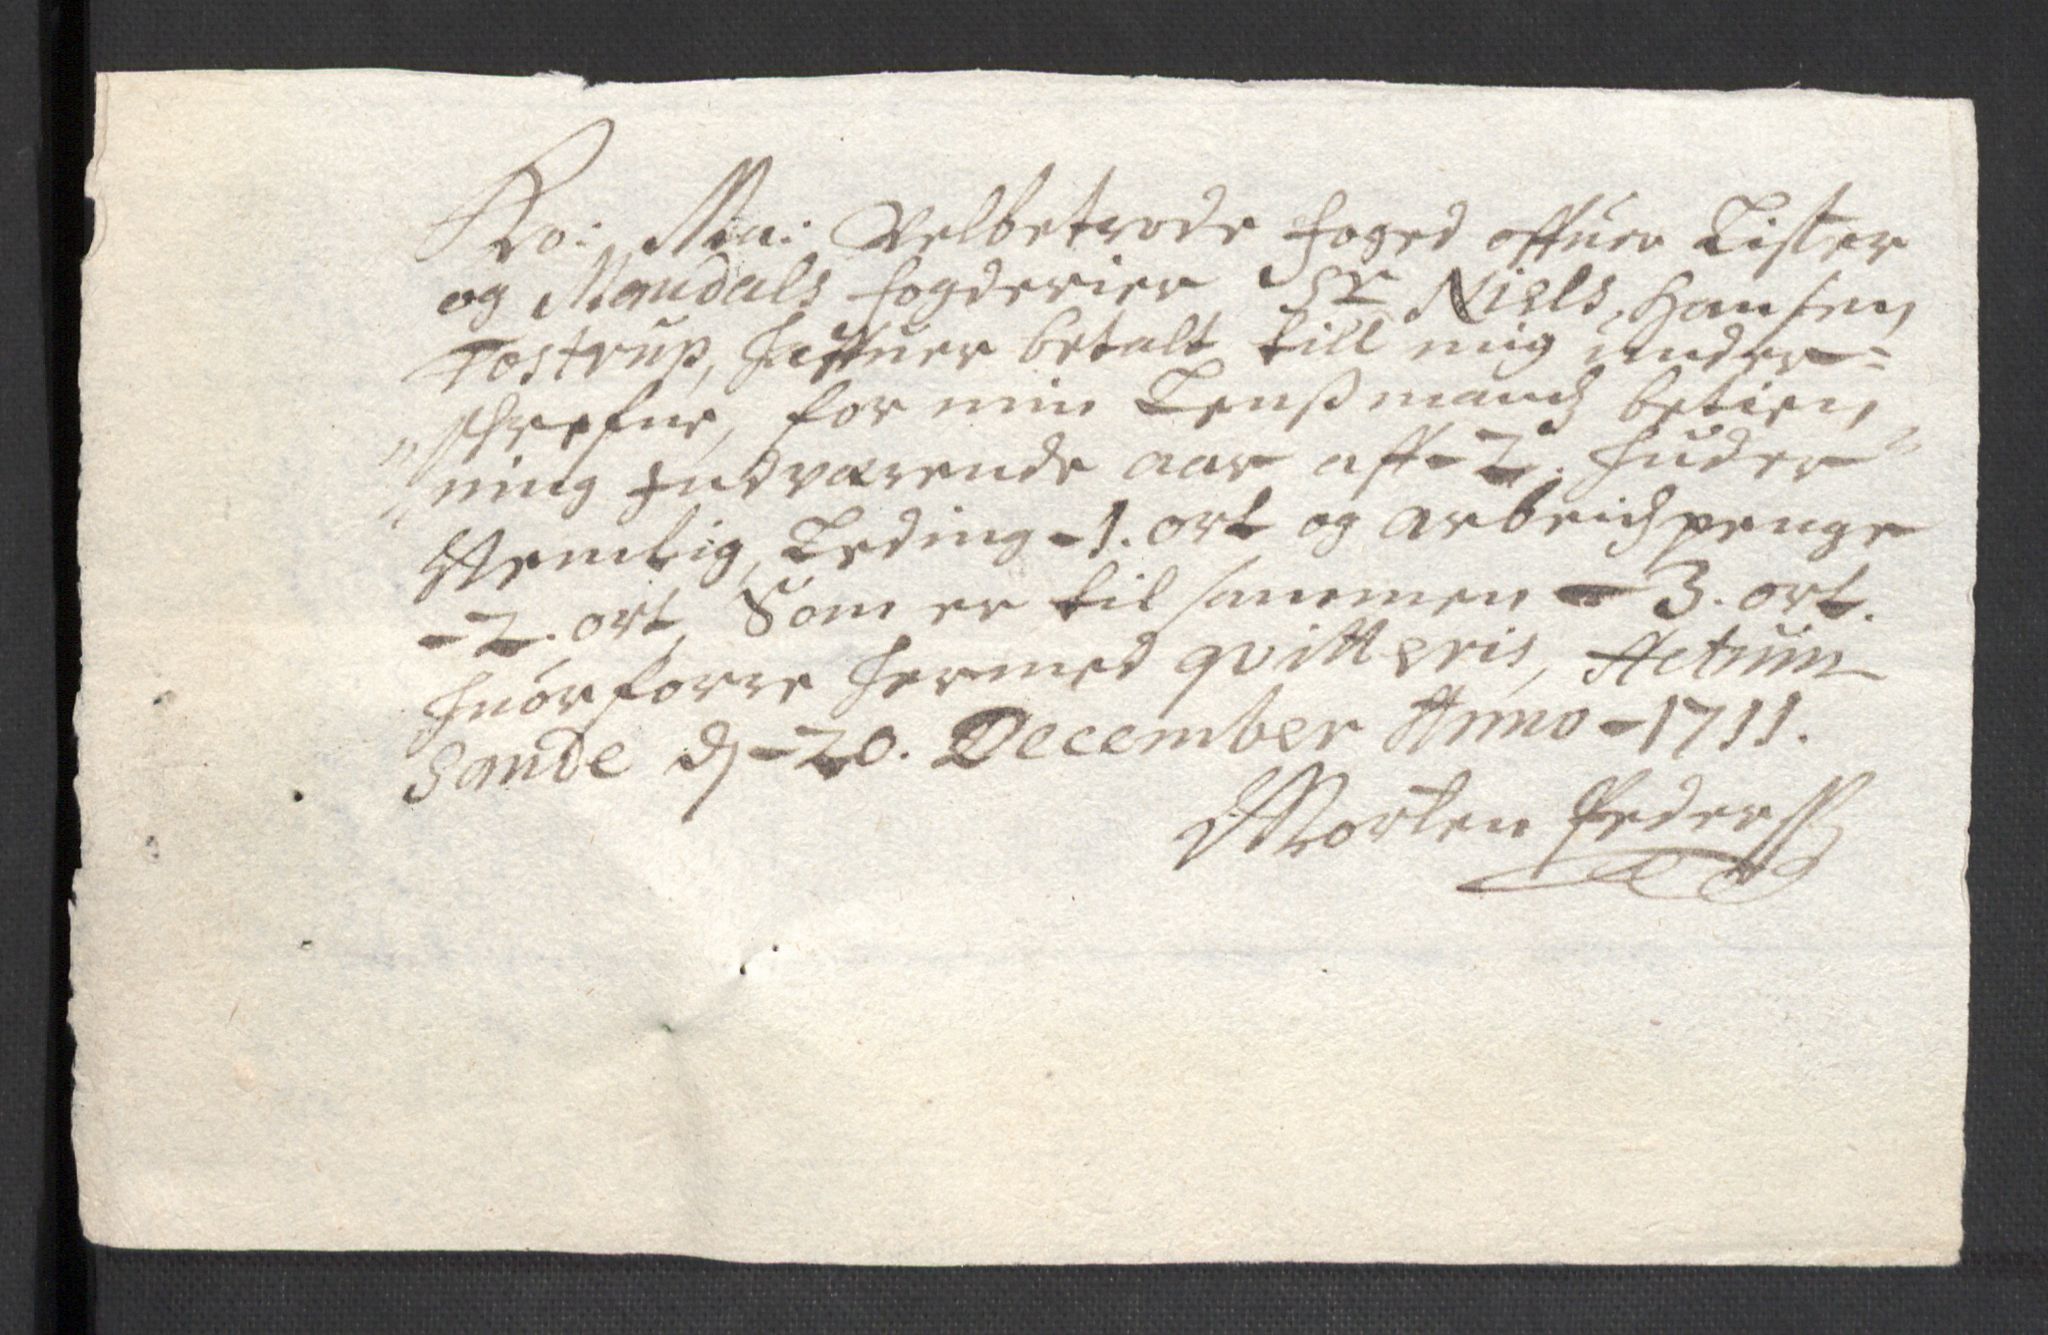 Ko: Ma: Velbetrode foged offuer Lister
og Mandals fogderier Sr Niels Hansen
Tostrup, haffuer betalt till mig under=
"schrefne, for min Lensßmands betien,
ning Indværende aar aff -2. huder
Nemlig, Leding -1. ort og arbeids penge
-2. ort, Som er til sammen - 3. ort.
huorforre hermed qvitteris, Actum
Sande d -20. December Anno -1711.
Morten Pederss